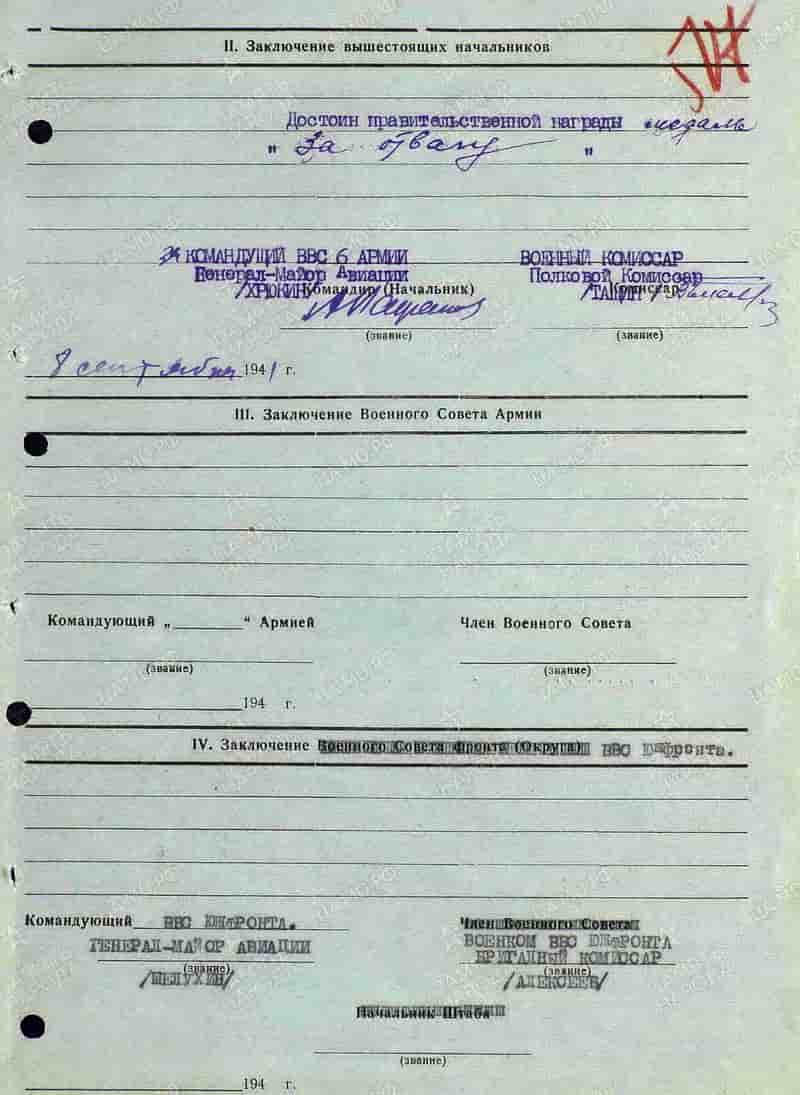 II. Заключение вышестоящих начальников
Достоин правительственной награды медаль
" За отвагу "
КОМАНДУЩИЙ ВВС 6 АРМИИ ВОЕННЫЙ КОМИССАР
Генерал-Майор Авиации Полковой Комиссар
/ХРЮКИН/ Командир (Начальник) /ТАШИН/ Комиссар
(звание) (звание)
8 сентября 1941 г.
III. Заключение Военного Совета Армии
Командующий „ “ Армией Член Военного Совета
(звание) (звание)
194 г.
IV. Заключение Военного Совета фронта (Округа) ВВС Южфронта.
Командующий ВВС ЮЖФРОНТА. Член Военного Совета
ГЕНЕРАЛ-МАЙОР АВИАЦИИ ВОЕНКОМ ВВС ЮЖФРОНТА
БРИГАДНЫЙ КОМИССАР
(звание) (звание)
/ШЕЛУХИН/ /АЛЕКСЕЕВ/
Начальник Штаба
(звание)
194 г.